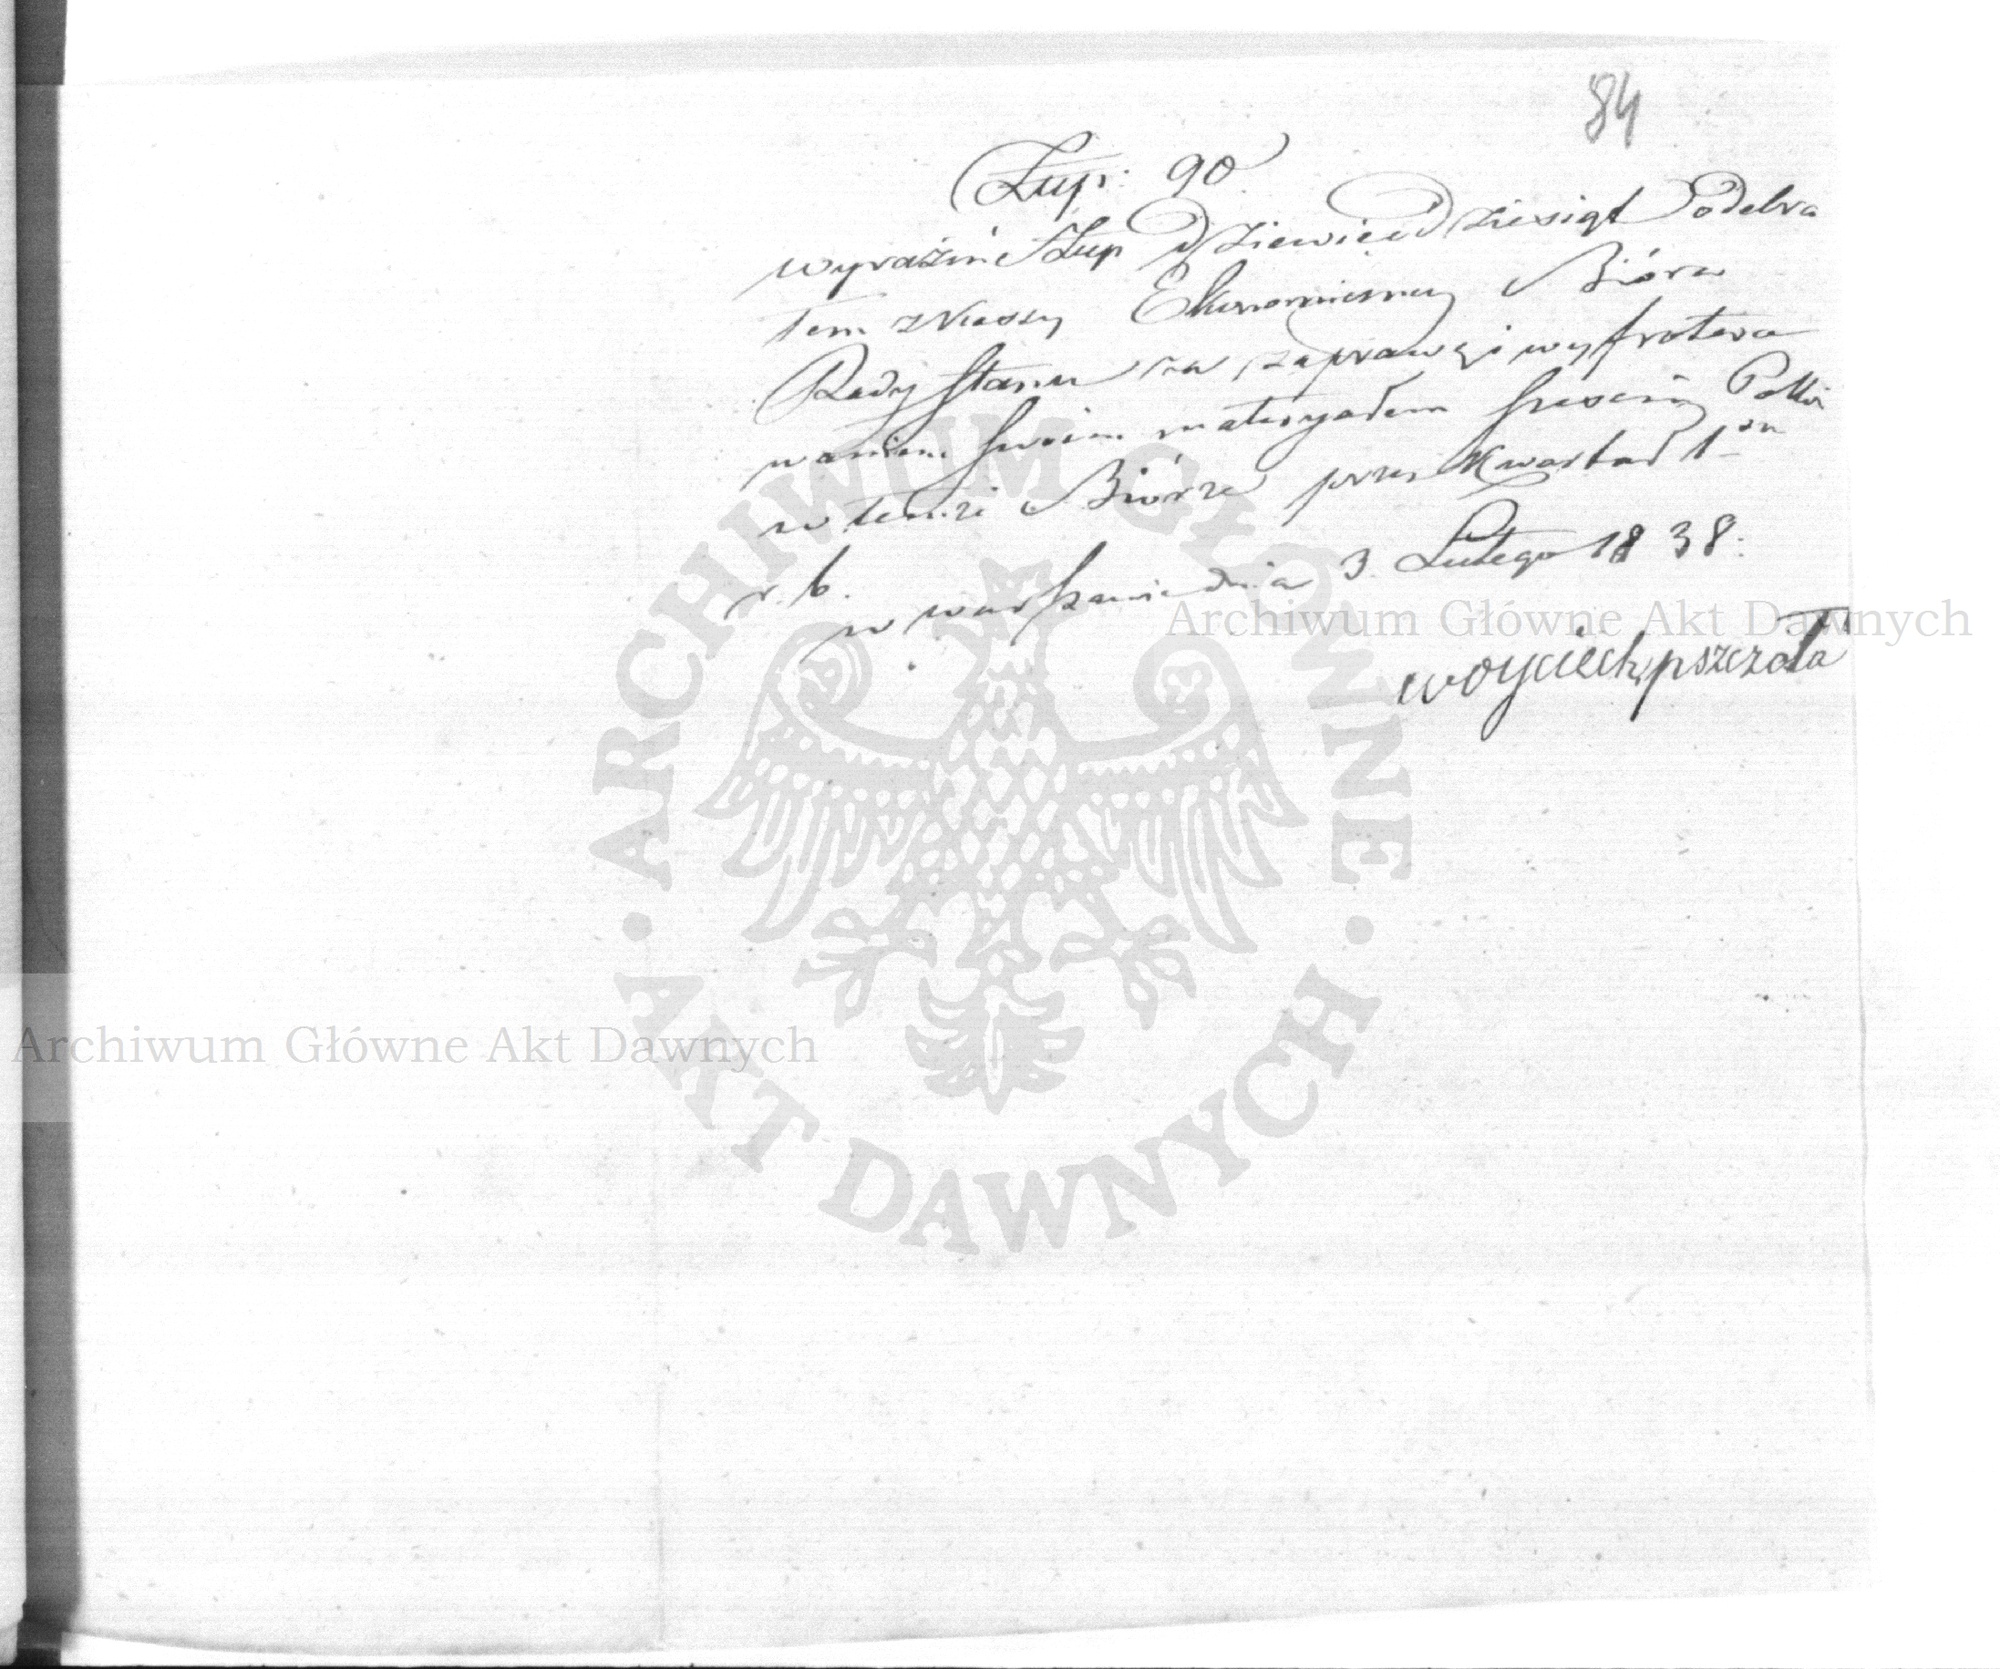 84
Złłp: 90.
wyraźnie Złłp Dziewięćdziesiąt Odebra
łem z Kassy Ekonomiczney Bióra
Rady Stanu za zaprawę i wyfrotero
waniem swoim materyałem sześciu Pokoi
w temże Biórze przez Kwartał 1szy
r. b.
w Warszawie dnia 3. Lutego 1838.
woyciech pszczoła
ARCHIWUM GŁÓWNE AKT DAWNYCH
Archiwum Główne Akt Dawnych
Archiwum Główne Akt Dawnych